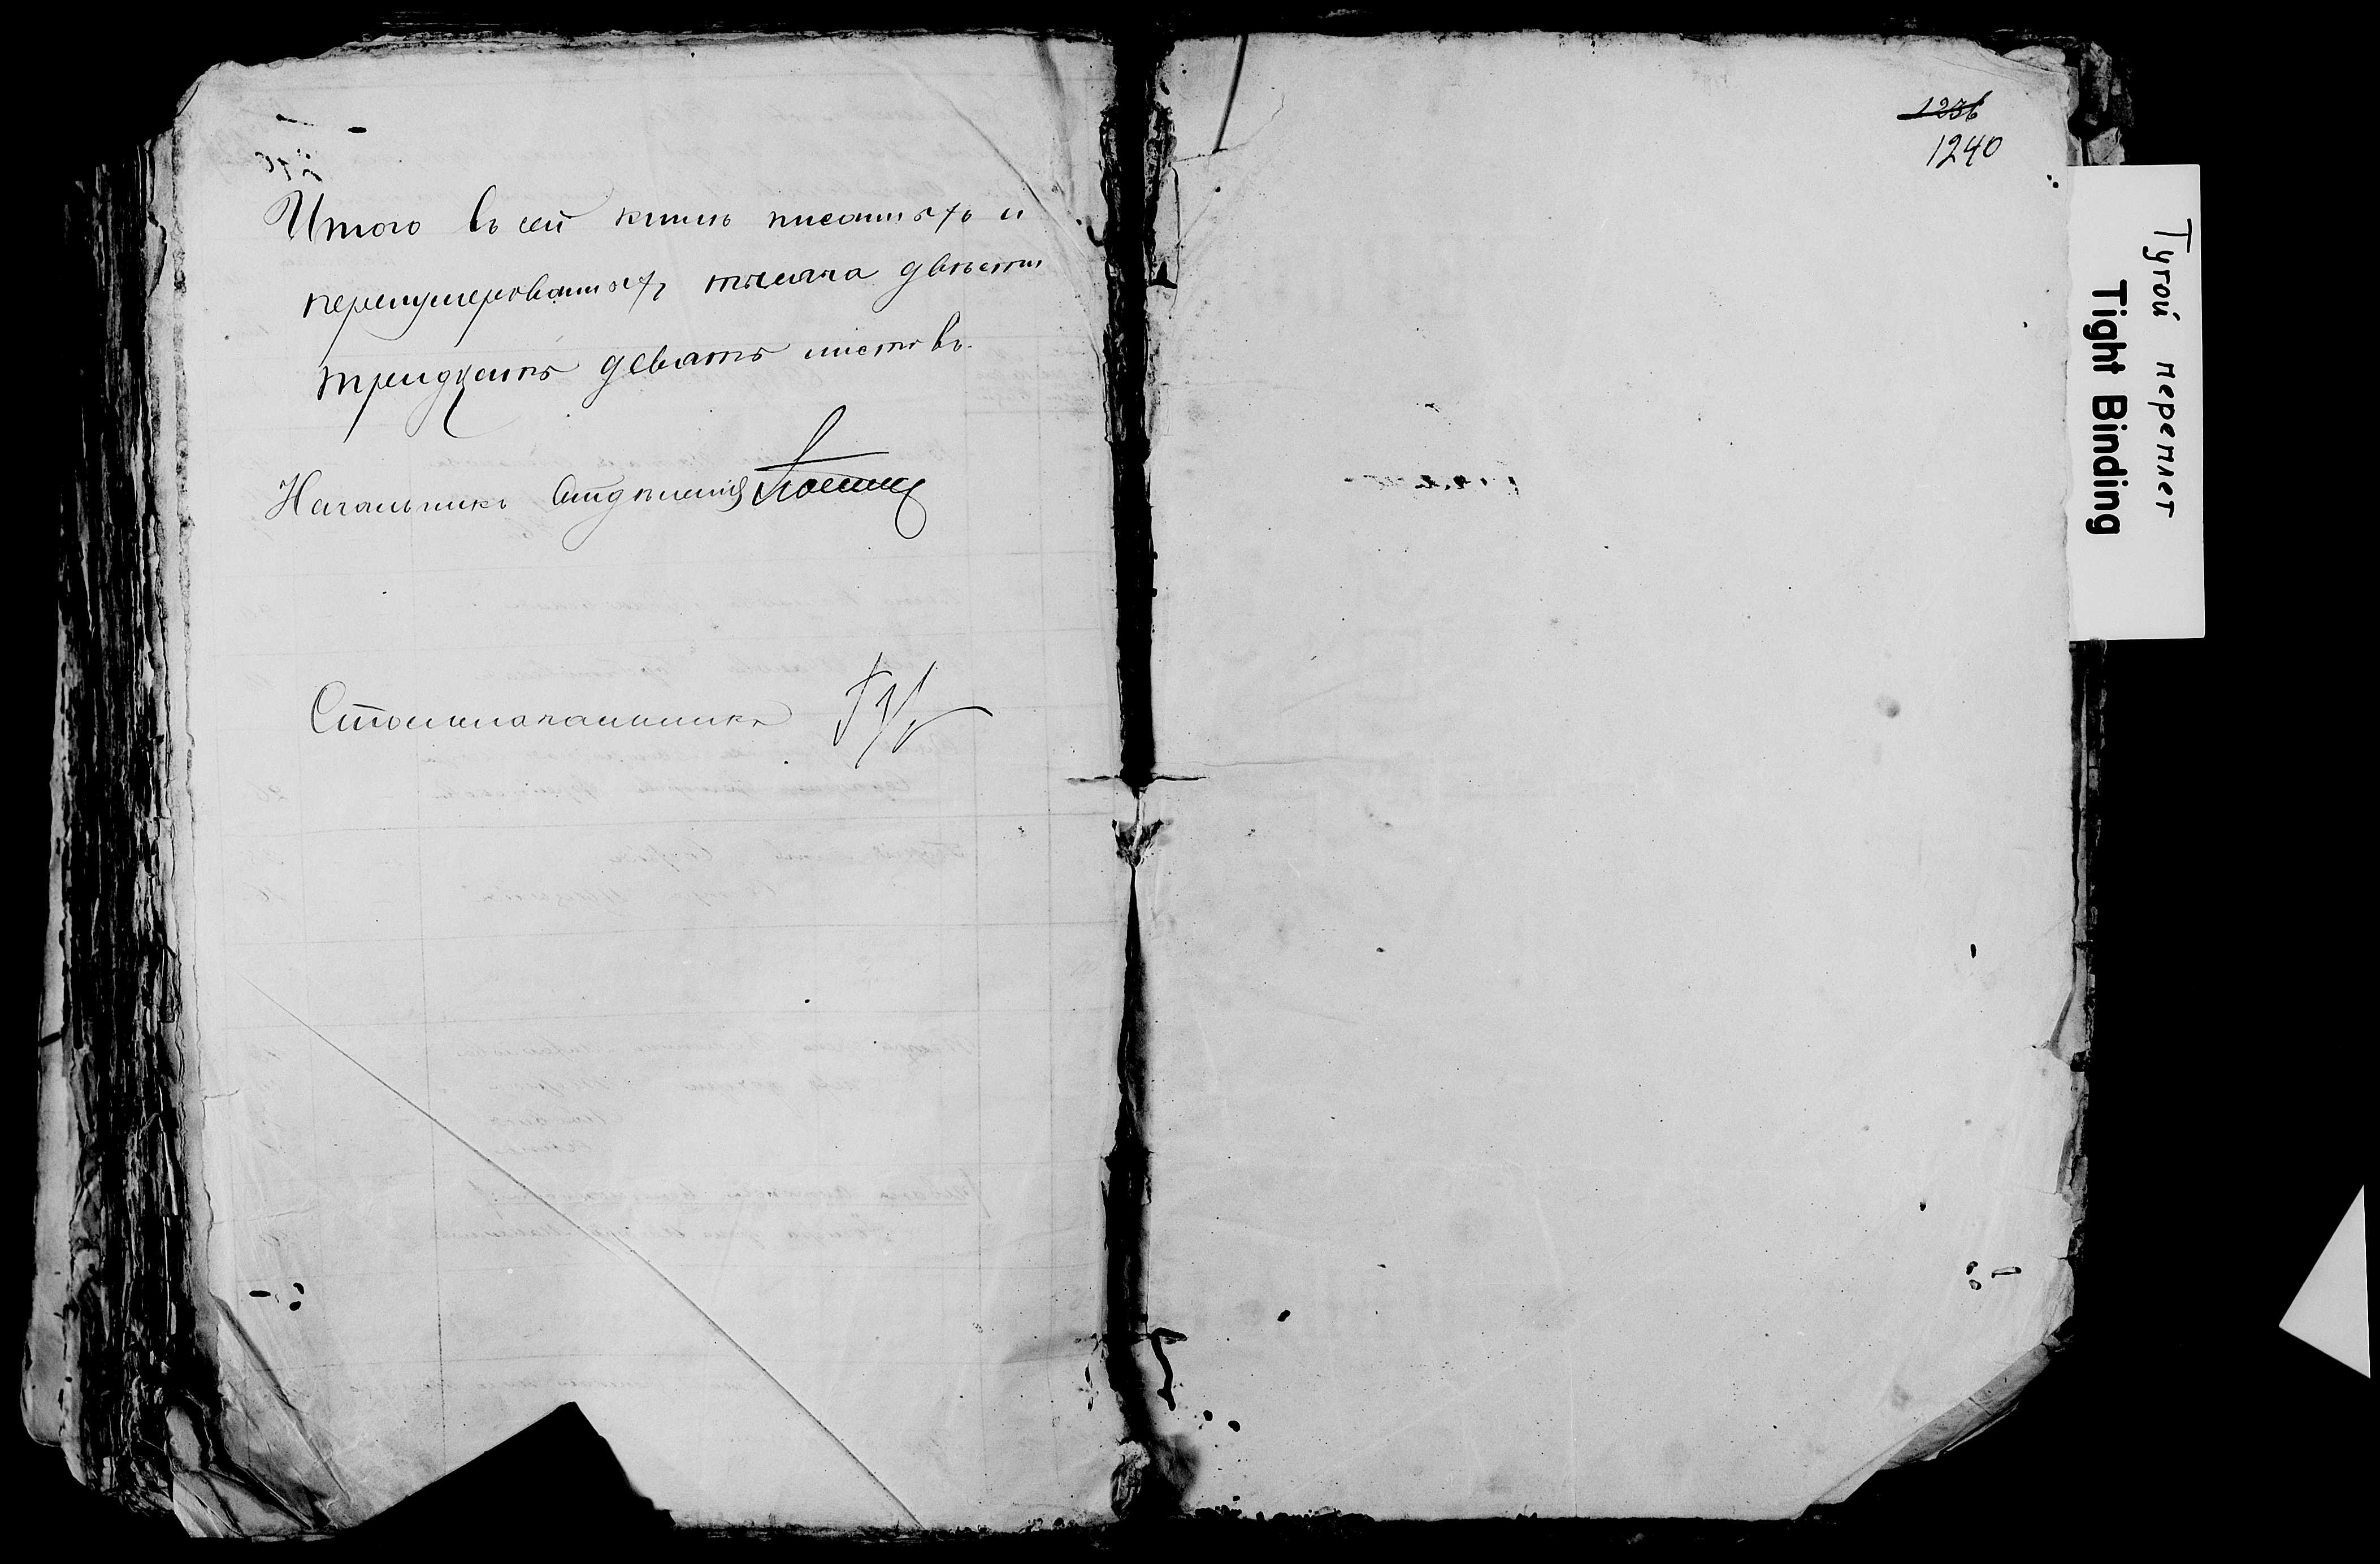 Итого въ сей книгѣ писанныхъ и
перенумерованныхъ тысяча двѣсти
тридцать девять листовъ.
Начальникъ Отдѣленія
Столоначальникъ
1236
1240
Тугой переплет
Tight Binding